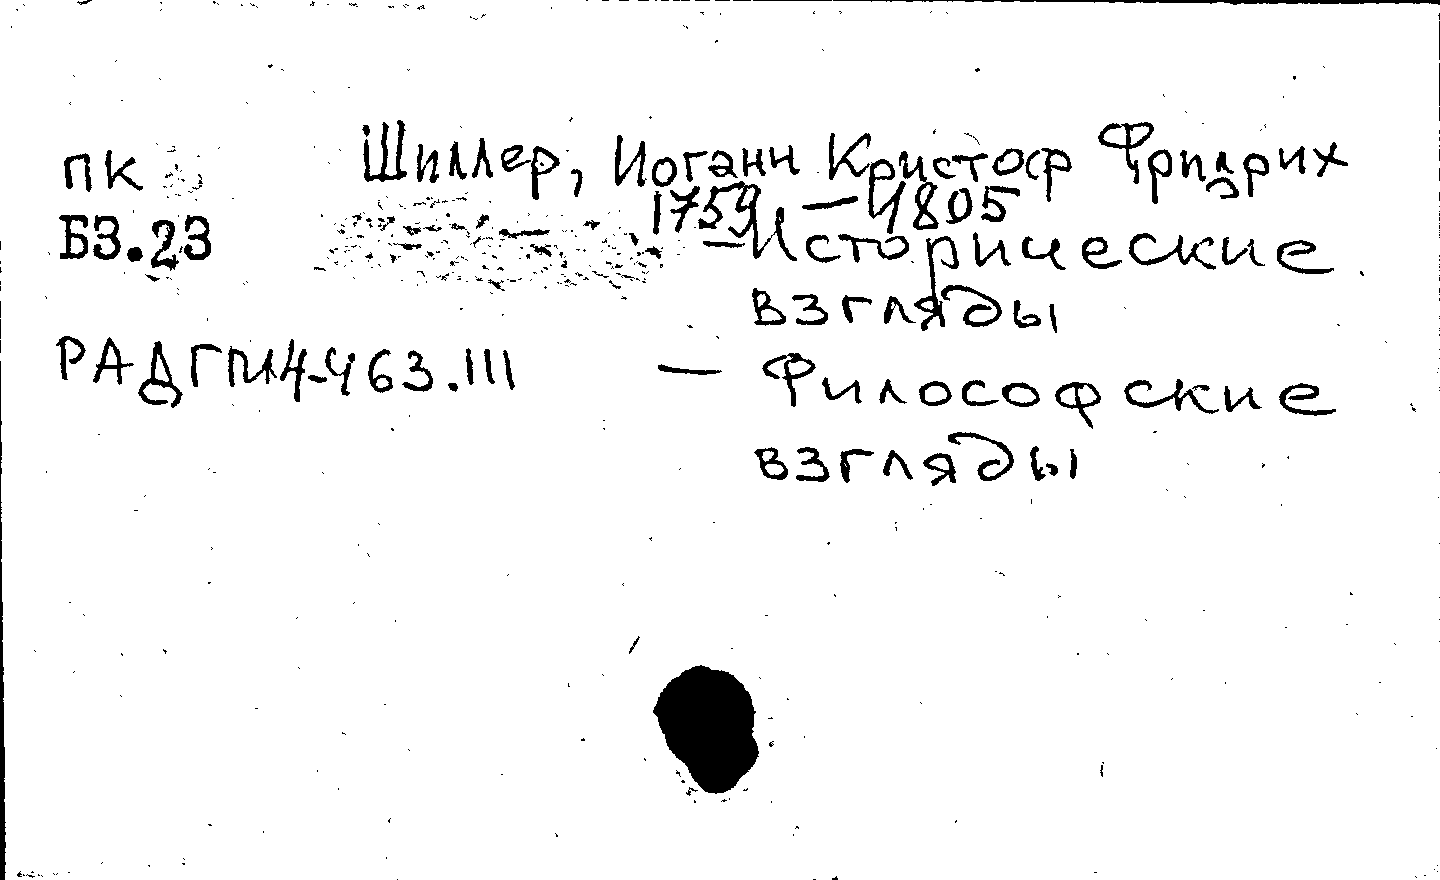 ПК
Б3.23
РАДГПМ4-463.III
Шиллер, Иоганн Кристоф Фридрих
1759 — 1805
— Исторические
взгляды
— Философские
взгляды